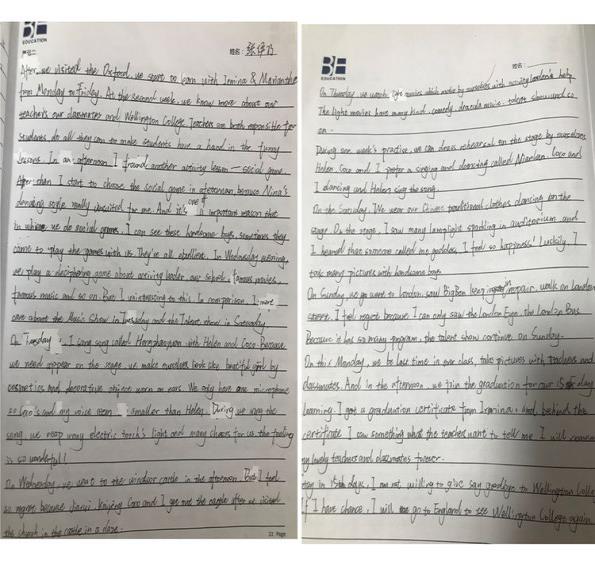 BE
EDUCATION
姓名:
After we visited the Oxford we start to learn with Irmina & Marianthe
from Monday to Friday. At the second week, we know more about our
teachers our classmates and Wellington College Teachers are both reponsible for
students do all they can to make students have a hand in the funny
lessons. In an afternoon I found another activity lesson — social game.
After than I start to choose the social game in afternoon because Nina's
dancing style really unsuited for me. And it's one of important reason that
in when we do social games I can see these handsome boys. sometimes they
came to play the games with us. They're all excellent. In Wednesday evening,
we play a game about activity leader our school, famous movies,
famous music and so on. But I uninteresting to this. In comparison. I more
care about the Music Show in Tuesday and the Talent show in Saturday.
On Tuesday. I sang song called with Helen and Coco Because
we need appear on the stage we make ourselves look like beautiful girls by
cosmetics and decorative object worn on ears. We only have one microphone
so Coco's and my voice seem smaller than Helen. During we sang the
song we reap many electric torch's light and many cheers for us. the feeling
is so wonderful!
On Wednesday, we went to the windsor castle in the afternoon. But I feel
so regret because Jianyi Kaiying Coco and I got out the castle after we visited
the church in the castle in a daze.
21 Page
BE
EDUCATION
姓名:
On Thursday we watch movies which make by ourselves with activity leader's help.
The light movies have many kind. comedy, movie. talent show and so
on.
During one week's practice, we can dress rehearsal on the stage by ourselves
Helen, Coco and I prefer a singing and dancing called Mianlan. Coco and
I dancing and Helen sing the song.
On the Sunday. We wear our Chinese traditional clothes dancing on the
stage. On the stage, I saw many lamplight sparkling in auditorium and
I heared that someone called me goddess. I feel so happiness! Luckily, I
took many pictures with handsome boys.
On Sunday we go to London. saw BigBen being in repair, walk on London
street. I feel regret because I can only saw the London Eye, the London Bus
Because it has so many program, the talent show continue on Sunday.
On this Monday, we be last time in our class, take pictures with teachers and
classmates. And in the afternoon we join the graduation for our 15 day
learning. I got a graduation certificate from Irmina. And behind the
certificate I saw something what the teacher want to tell me. I will
my lovely teachers and classmates forever.
in 15th days. I am not willing to give say goodbye to Wellington
If I have chance, I will go to England to see Wellington College again.